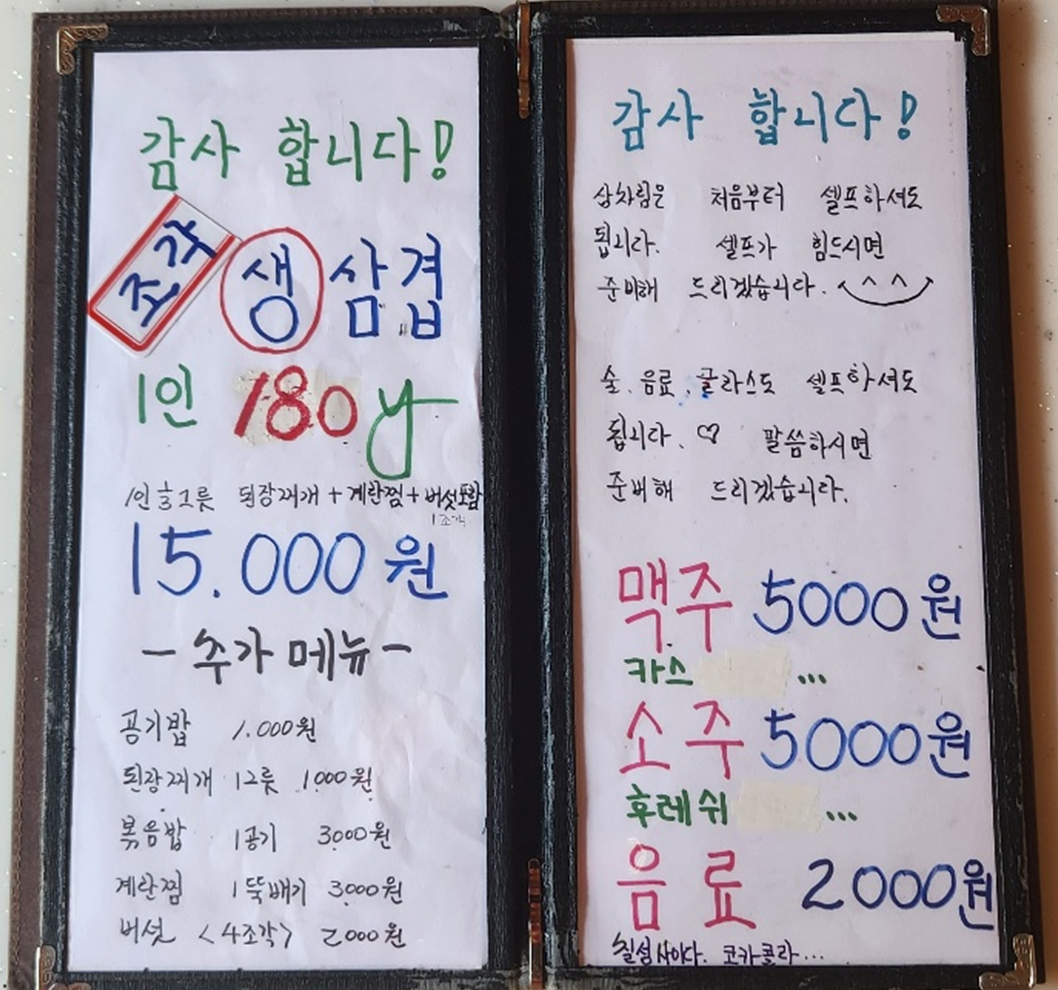 감사 합니다!
조각
생삼겹
1인 180g
1인 한그릇 된장찌개 + 계란찜 + 버섯포함
1조각
15.000원
- 추가 메뉴 -
공기밥 1.000원
된장찌개 1그릇 1.000원
볶음밥 1공기 3000원
계란찜 1뚝배기 3000원
버섯 <4조각> 2000원
감사 합니다!
상차림은 처음부터 셀프하셔도
됩니다. 셀프가 힘드시면
준비해 드리겠습니다.
술.음료.글라스도 셀프하셔도
됩니다. ♡ 말씀하시면
준비해 드리겠습니다.
맥주 5000원
카스 ...
소주 5000원
후레쉬 ...
음료 2000원
칠성사이다. 코카콜라...